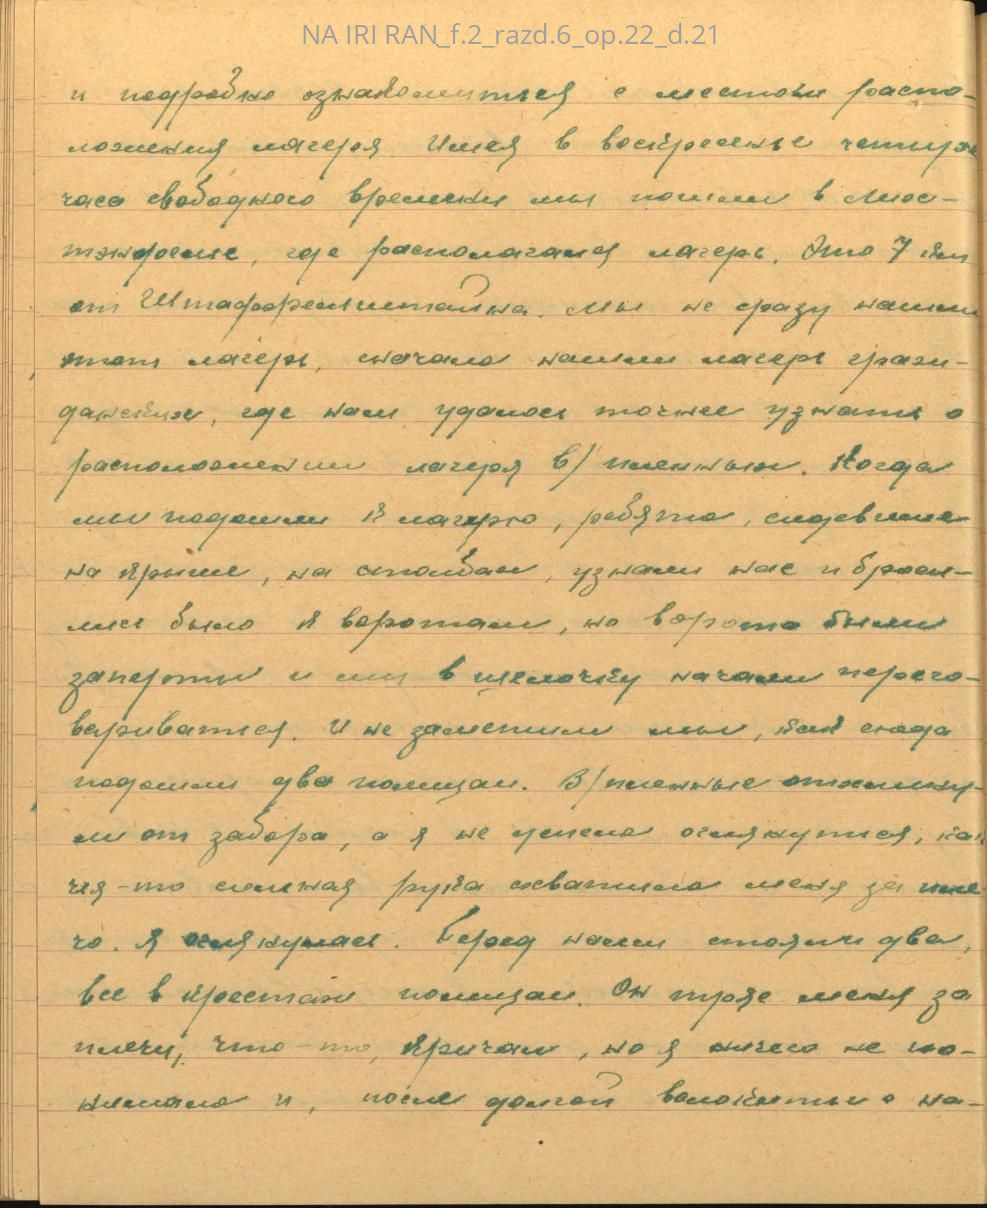 NA IRI RAN_f.2_razd.6_op.22_d.21
и подробно ознакомиться с местом распо-
ложения лагеря Имея в воскресенье четыре
часа свободного времени мы пошли в
где располагался лагерь. Это 7 км
от Штаффельштайна. Мы не сразу нашли
этот лагерь, сначала нашли лагерь граж-
данских, где нам удалось точнее узнать о
расположении лагеря в/пленных. Когда
мы подошли к лагерю, ребята, сидевшие
на крыше, на столбах, узнали нас и броси-
лись было к воротам, но ворота были
заперты и мы в щелочку начали перего-
вариваться. И не заметили мы, как сюда
подошли два полицая. В/пленные отхлыну-
ли от забора, а я не успела оглянуться, как
чья-то сильная рука схватила меня за пле-
чо. Я оглянулась. Перед нами стояли два,
все в крестах полицая. Он трясе меня за
плечи, что-то, кричал, но я ничего не по-
нимала и, после долгой волокиты о на-